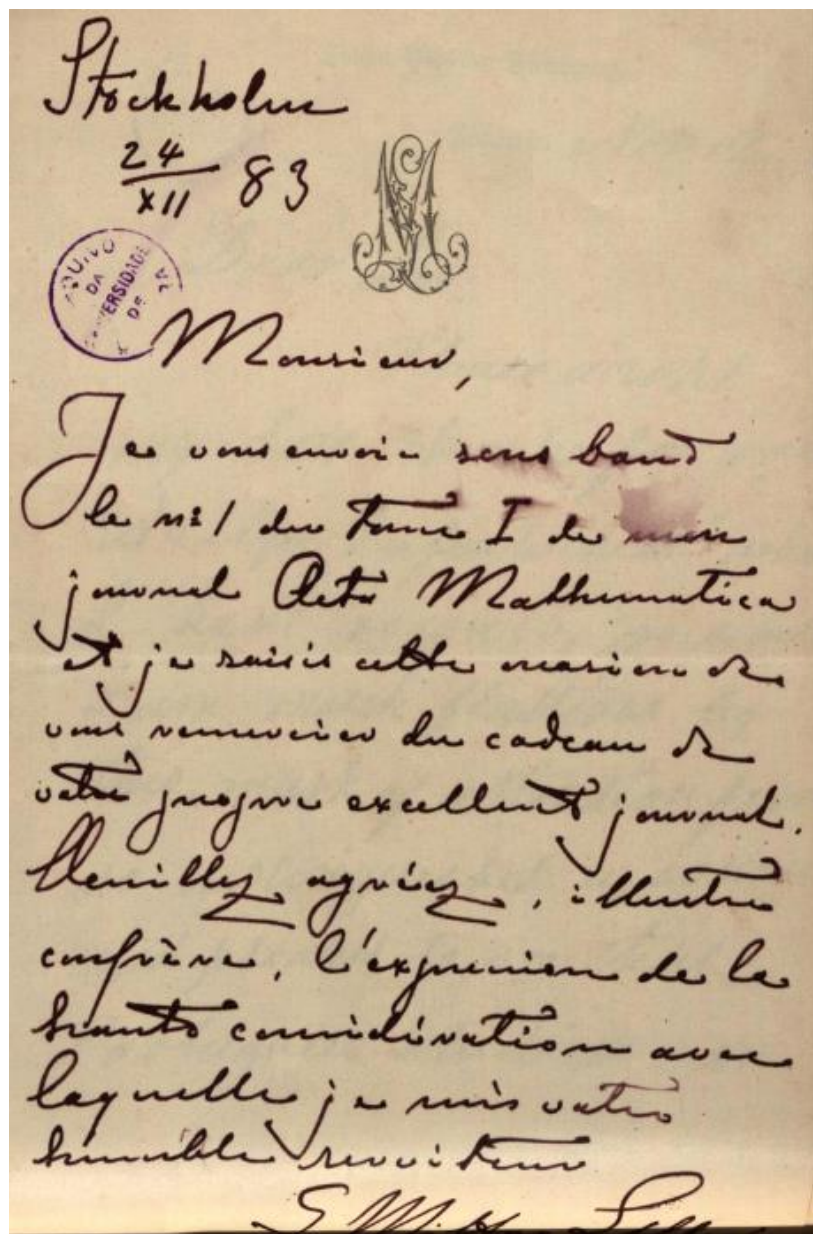 Stockholm
24
XII 83
M
ARQUIVO
DA
UNIVERSIDADE
DE
Monsieur,
Je vous envoie sous band
le nº 1 du Tome I de mon
journal Acta Mathematica
et je saisis cette occasion de
vous remercier du cadeau de
votre propre excellent journal.
Veuillez agréez, illustre
confrère, l'expression de la
haute considération avec
laquelle je suis votre
humble serviteur
G Mittag Leffler